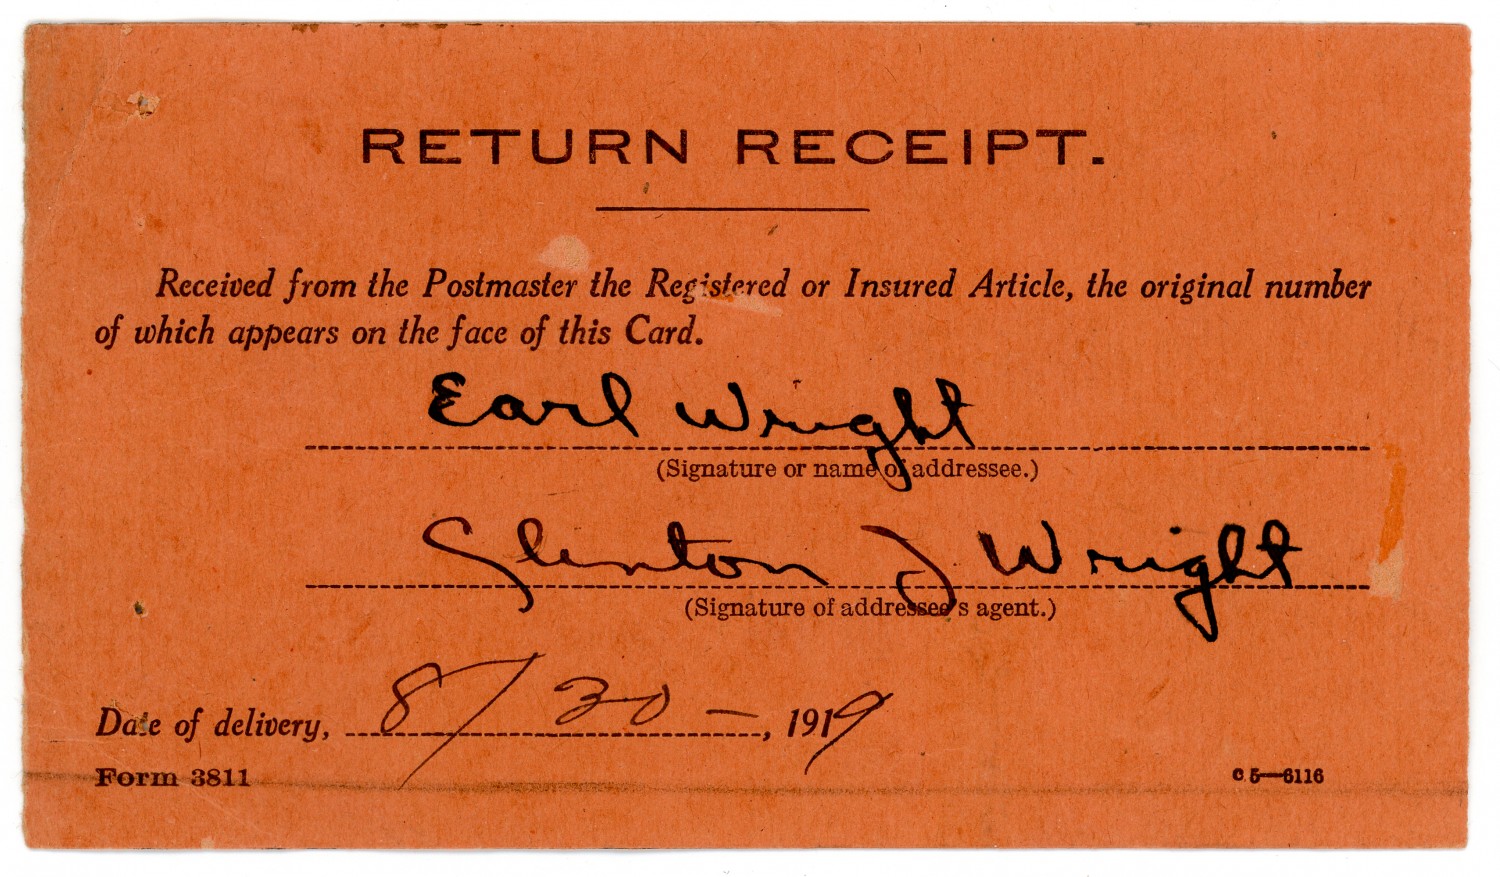 RETURN RECEIPT.
Received from the Postmaster the Registered or Insured Article, the original number
of which appears on the face of this Card.
Earl Wright
(Signature or name of addressee.)
Clinton J Wright
(Signature of addressee's agent.)
Date of delivery, 8/30 —, 1919
Form 3811
c5—6116